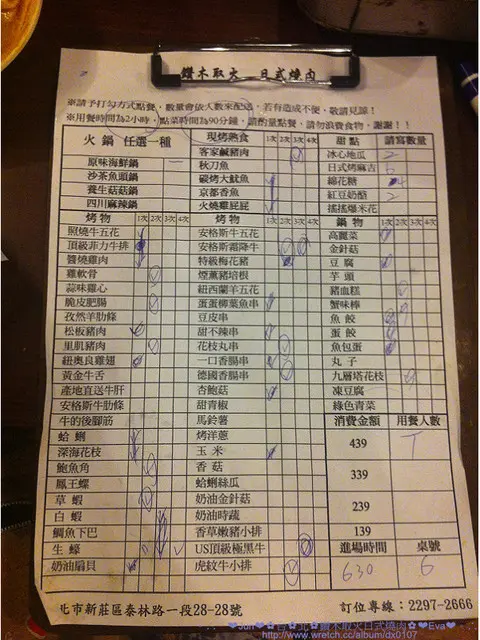 鑽木取火 日式燒肉
※請予打勾方式點餐，數量會依人數來配送，若有造成不便，敬請見諒！
※用餐時間為2小時，點菜時間為90分鐘，請酌量點餐，請勿浪費食物，謝謝！！
火鍋 任選一種 現烤熟食 1次 2次 3次 4次 甜點 請寫數量
原味海鮮鍋 客家鹹豬肉 冰心地瓜 2
沙茶魚頭鍋 秋刀魚 日式烤麻吉 6
養生菇菇鍋 碳烤大魷魚 棉花糖
四川麻辣鍋 京都香魚 紅豆奶酪 2
火燒雞屁屁 搖搖爆米花
烤物 1次 2次 3次 4次 烤物 1次 2次 3次 4次 鍋物 1次 2次 3次 4次
照燒牛五花 安格斯牛五花 高麗菜
頂級菲力牛排 安格斯霜降牛 金針菇
醬燒雞肉 特級梅花豬 豆腐
雞軟骨 煙薰豬培根 芋頭
蒜味雞心 紐西蘭羊五花 豬血糕
脆皮肥腸 蛋蛋柳葉魚串 蟹味棒
孜然羊肋條 豆皮串 魚餃
松板豬肉 甜不辣串 蛋餃
里肌豬肉 花枝丸串 魚包蛋
紐奧良雞翅 一口香腸串 丸子
黃金牛舌 德國香腸串 九層塔花枝
產地直送牛肝 杏鮑菇 凍豆腐
安格斯牛肋條 甜青椒 綠色青菜
牛的後腳筋 馬鈴薯 消費金額 用餐人數
蛤蜊 烤洋蔥 439
深海花枝 玉米
鮑魚角 香菇 339
鳳王螺 蛤蜊絲瓜
草蝦 奶油金針菇 239
白蝦 奶油時蔬
鯛魚下巴 香草嫩豬小排 139
生蠔 US頂級極黑牛 進場時間 桌號
奶油扇貝 虎紋牛小排 630 6
北市新莊區泰林路一段28-28號 訂位專線：2297-2666
http://www.wretch.cc/album/dx0107